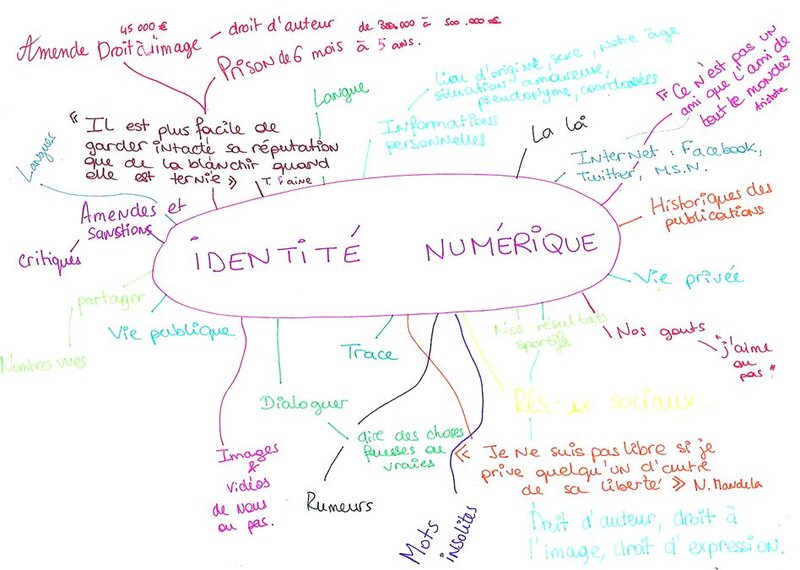 45 000 €
Amende Droit à l'image - droit d'auteur de 300.000 à 500.000 €
Prison de 6 mois à 5 ans.
« Il est plus facile de
garder intacte sa réputation
que de la blanchir quand
elle est ternie »
T. Paine
Langue
Lieu d'origine, sexe, notre âge
situation amoureuse,
pseudonyme, coordonnées
Informations
personnelles
La loi
« Ce n'est pas un
ami que l'ami de
tout le monde »
Aristote
Internet: Facebook,
Twitter, M.S.N.
Historiques des
publications
Langues
Amendes et
sanstions
critiqués
IDENTITÉ NUMÉRIQUE
partager
Nombres vues
Vie publique
Vie privée
Trace
Nos résultats
sportifs
Nos gouts
"j'aime
ou
pas"
Dialoguer
Images
&
vidéos
de nous
ou pas.
dire des choses
fausses ou
vraies
Rumeurs
Mots
insolites
sociaux...
« Je Ne suis pas libre si je
prive quelqu'un d'autre
de sa liberté » N. Mandela
Droit d'auteur, droit à
l'image, droit d'expression.